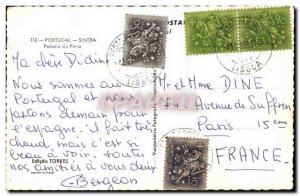 118 - PORTUGAL - SINTRA
Palacio da Pena
Ma chère Didine
Nous sommes au
Portugal et nous
partons demain pour
l'espagne. il fait très
chaud mais c'est si
beau à voir. toutes
nos amitiés à vous deux
Bergeon
Edição TORRES
LISBOA
Mr et Mme DINE
74 Avenue de Suffren
Paris 15ème
FRANCE